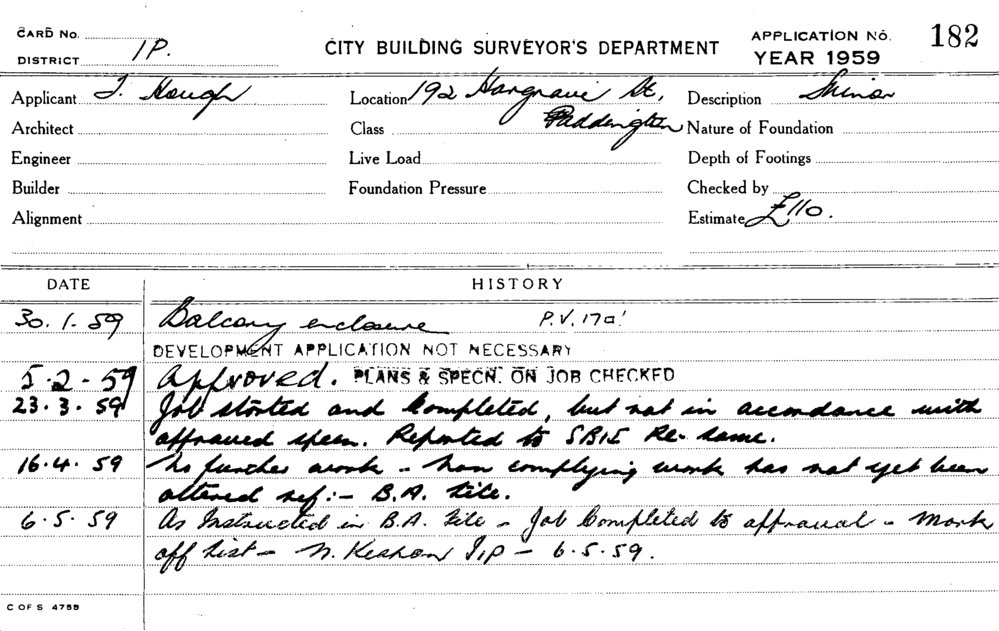 CARD No.
DISTRICT 1P.
CITY BUILDING SURVEYOR'S DEPARTMENT
APPLICATION No. 182
YEAR 1959
Applicant J. Hough
Location 192 Hargrave St,
Description Minor
Architect
Class Paddington
Nature of Foundation
Engineer
Live Load
Depth of Footings
Builder
Foundation Pressure
Checked by
Alignment
Estimate £110.
DATE HISTORY
30.1.59 Balcony enclosure P.V. 17a'
DEVELOPMENT APPLICATION NOT NECESSARY
5.2.59 Approved. PLANS & SPECN. ON JOB CHECKED
23.3.59 Job started and Completed, but not in accordance with
approved specn. Reported to SBIS Re- same.
16.4.59 No further work - Non complying work has not yet been
altered ref:- B.A. file.
6.5.59 As Instructed in B.A. file - Job Completed to approval - Mark
off list - N. 1/P - 6.5.59.
C OF S 4755